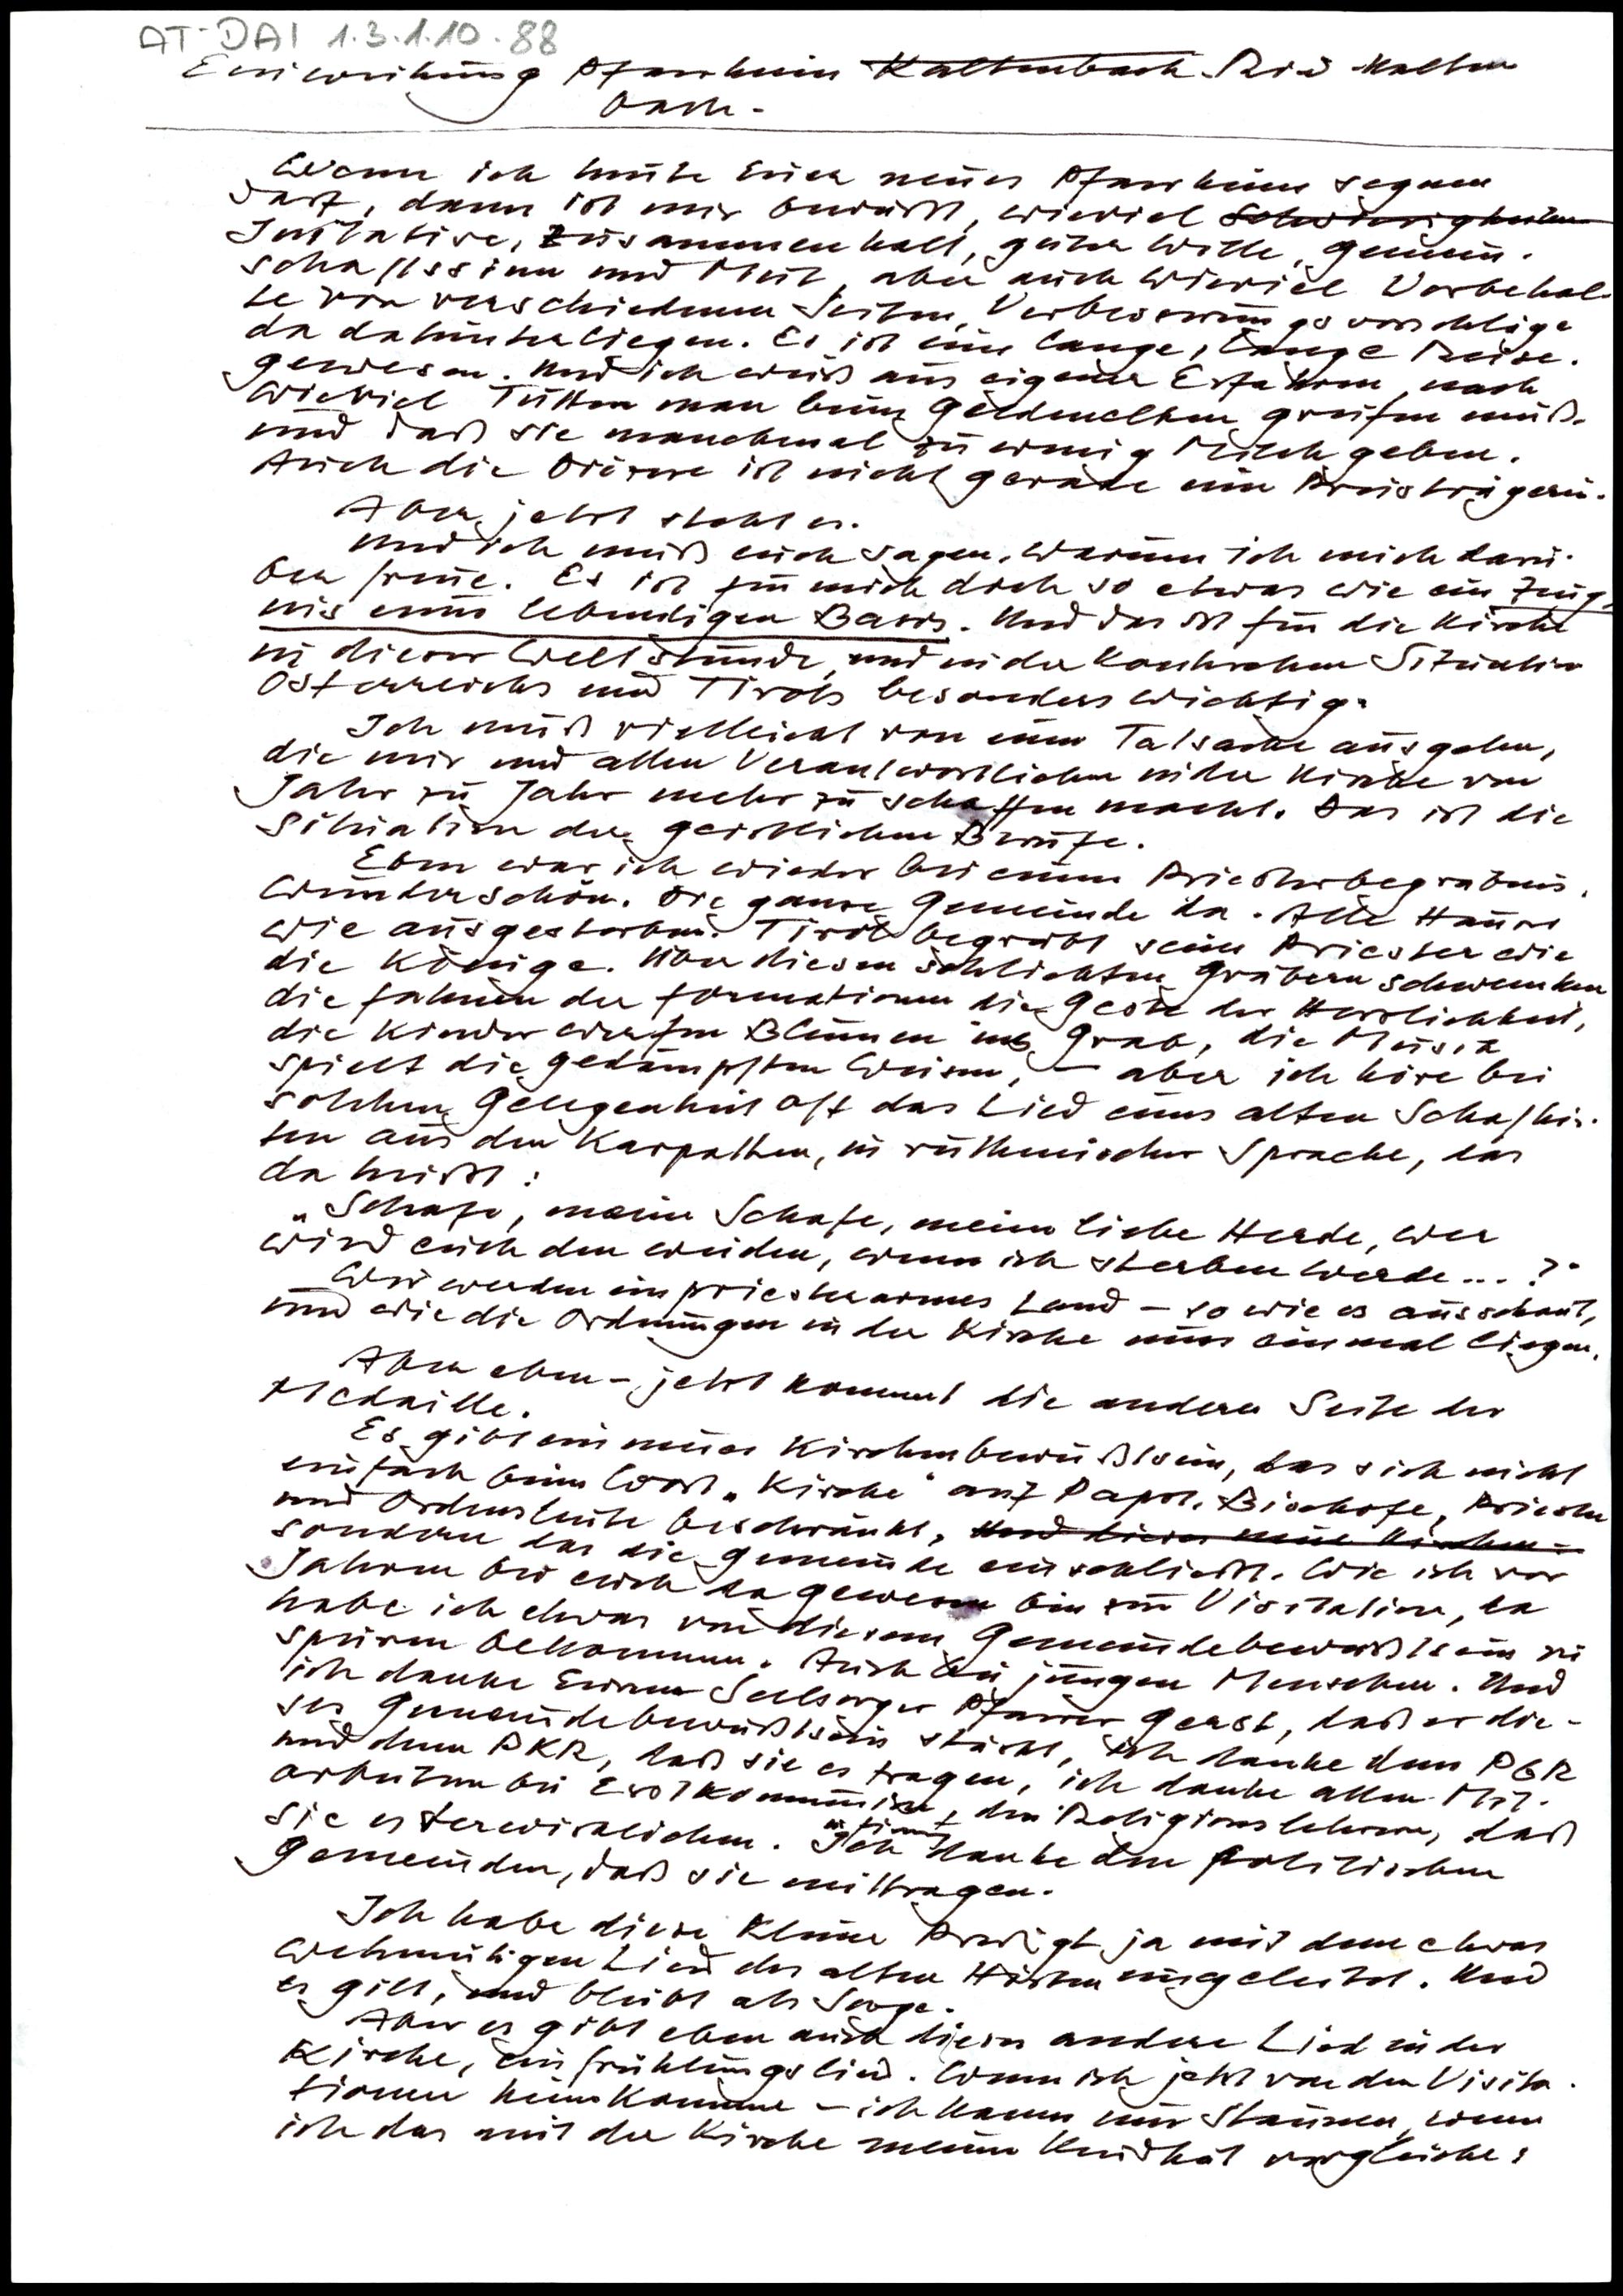 AT-DAI 1.3.1.10.88
Einweihung Pfarrheim Kaltenbach Ried-Kalten
bach.
Wenn ich heute Euer neues Pfarrheim segnen
darf, dann ist mir bewußt, wieviel Schwierigkeiten
Initiative, Zusammenhalt, guter Wille, Gemein-
schaftssinn und Mut, aber auch wieviel Vorbehal-
te von verschiedenen Seiten, Verbesserungsvorschläge
da dahinterliegen. Es ist eine lange, lange Reise
gewesen. Und ich weiß aus eigener Erfahrung, nach
wieviel Tutten man beim Geldmelken greifen muß.
und daß sie manchmal zu wenig Milch geben.
Auch die Diözese ist nicht gerade ein Preisträgerin.
Aber jetzt steht es.
Und ich muß euch sagen, warum ich mich darü-
ber freue. Es ist für mich doch so etwas wie ein Zeug-
nis einer lebendigen Basis. Und das ist für die Kirche
in dieser Weltstunde, und in der konkreten Situation
Österreichs und Tirols besonders wichtig.
Ich muß vielleicht von einer Tatsache ausgehen,
die mir und allen Verantwortlichen in der Kirche von
Jahr zu Jahr mehr zu schaffen macht. Das ist die
Situation der geistlichen Berufe.
Eben war ich wieder bei einem Priesterbegräbnis.
Wunderschön. Die ganze Gemeinde da. Alle Häuser
wie ausgestorben. Tirol begräbt seine Priester wie
die Könige. Über diesen schlichten Gräbern schwenken
die Fahnen der Formationen die Geste der Herrlichkeit,
die Kinder werfen Blumen ins Grab, die Musik
spielt die gedämpften Weisen, – aber ich höre bei
solchen Gelegenheit oft das Lied eines alten Schafhir-
ten aus den Karpathen, in ruthenischer Sprache, das
da heißt:
„Schafe, meine Schafe, meine liebe Herde, wer
wird euch den weiden, wenn ich sterben werde ... ?"
Wir werden ein priesterarmes Land – so wie es ausschaut,
und wie die Ordnungen in der Kirche nun einmal liegen.
Aber eben – jetzt kommt die andere Seite der
Medaille.
Es gibt ein neues Kirchenbewußtsein, das sich nicht
einfach beim Wort „Kirche" auf Papst, Bischöfe, Priester
und Ordensleute beschränkt, Und dieses neue Kirchen-
sondern das die Gemeinde einschließt. Wie ich vor
Jahren bei euch da gewesen bin zur Visitation, da
habe ich etwas von diesem Gemeindebewußtsein zu
spüren bekommen. Auch bei jungen Menschen. Und
ich danke Eurem Seelsorger Pfarrer Geist, daß er die-
ses Gemeindebewußtsein stärkt, ich danke dem PGR
und dem PKR, daß sie es tragen, ich danke allen Mit-
arbeitern bei Erstkommunion, den Religionslehrern, daß
sie es verwirklichen. Ich danke den politischen
Gemeinden, daß sie mittragen.
Ich habe diese kleine Predigt ja mit dem etwas
wehmütigen Lied des alten Hirten eingeleitet. Und
es gilt, und bleibt als Sorge.
Aber es gibt eben auch dieses andere Lied in der
Kirche, ein Frühlingslied. Wenn ich jetzt von den Visita-
tionen heimkomme – ich kann nur staunen, wenn
ich das mit der Kirche meiner Kindheit vergleiche: